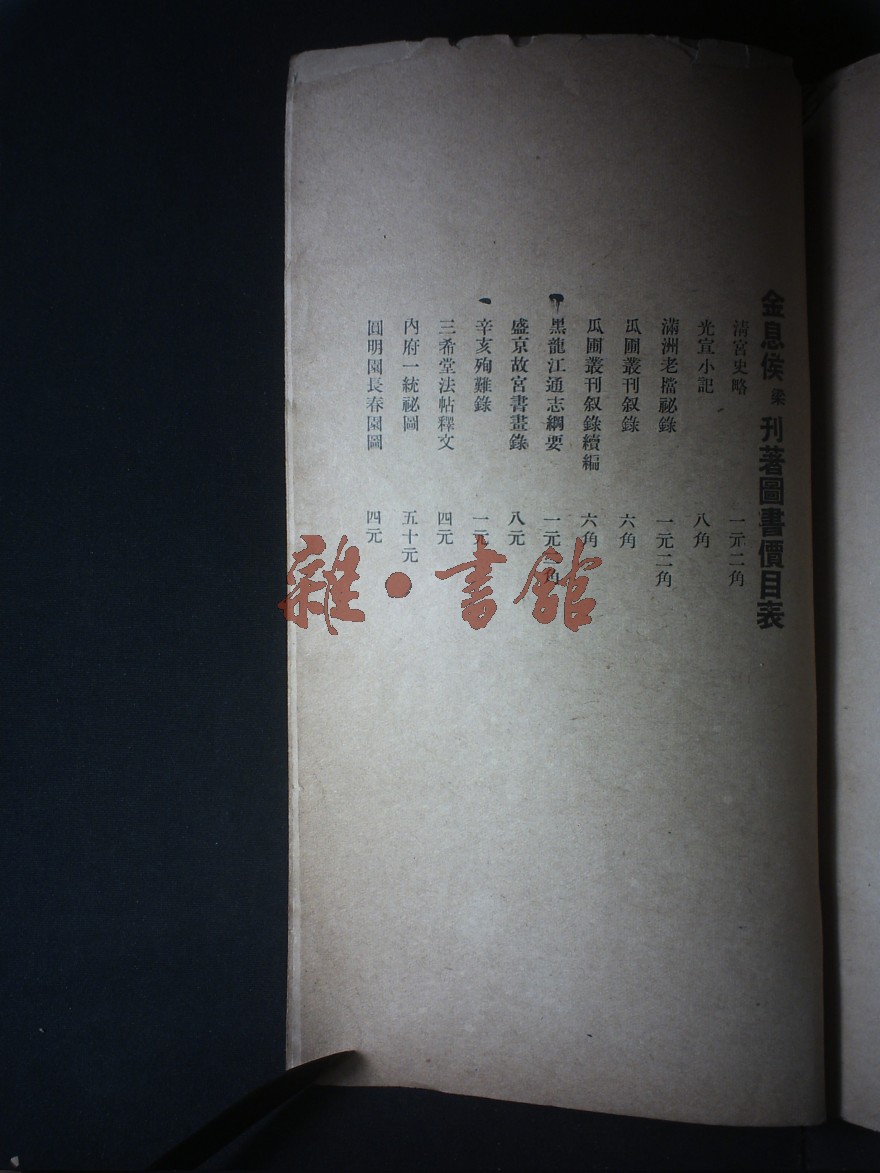 金息侯梁刊著圖書價目表
清宮史略 一元二角
光宣小記 八角
滿洲老檔祕錄 一元二角
瓜圃叢刊叙錄 六角
瓜圃叢刊叙錄續編 六角
黑龍江通志綱要 一元二角
盛京故宮書畫錄 八元
辛亥殉難錄 一元
三希堂法帖釋文 四元
內府一統祕圖 五十元
圓明園長春園圖 四元
雜·書館